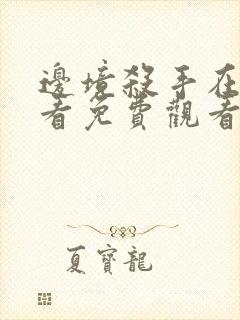 邊境殺手在
看免費觀看
夏寶龍